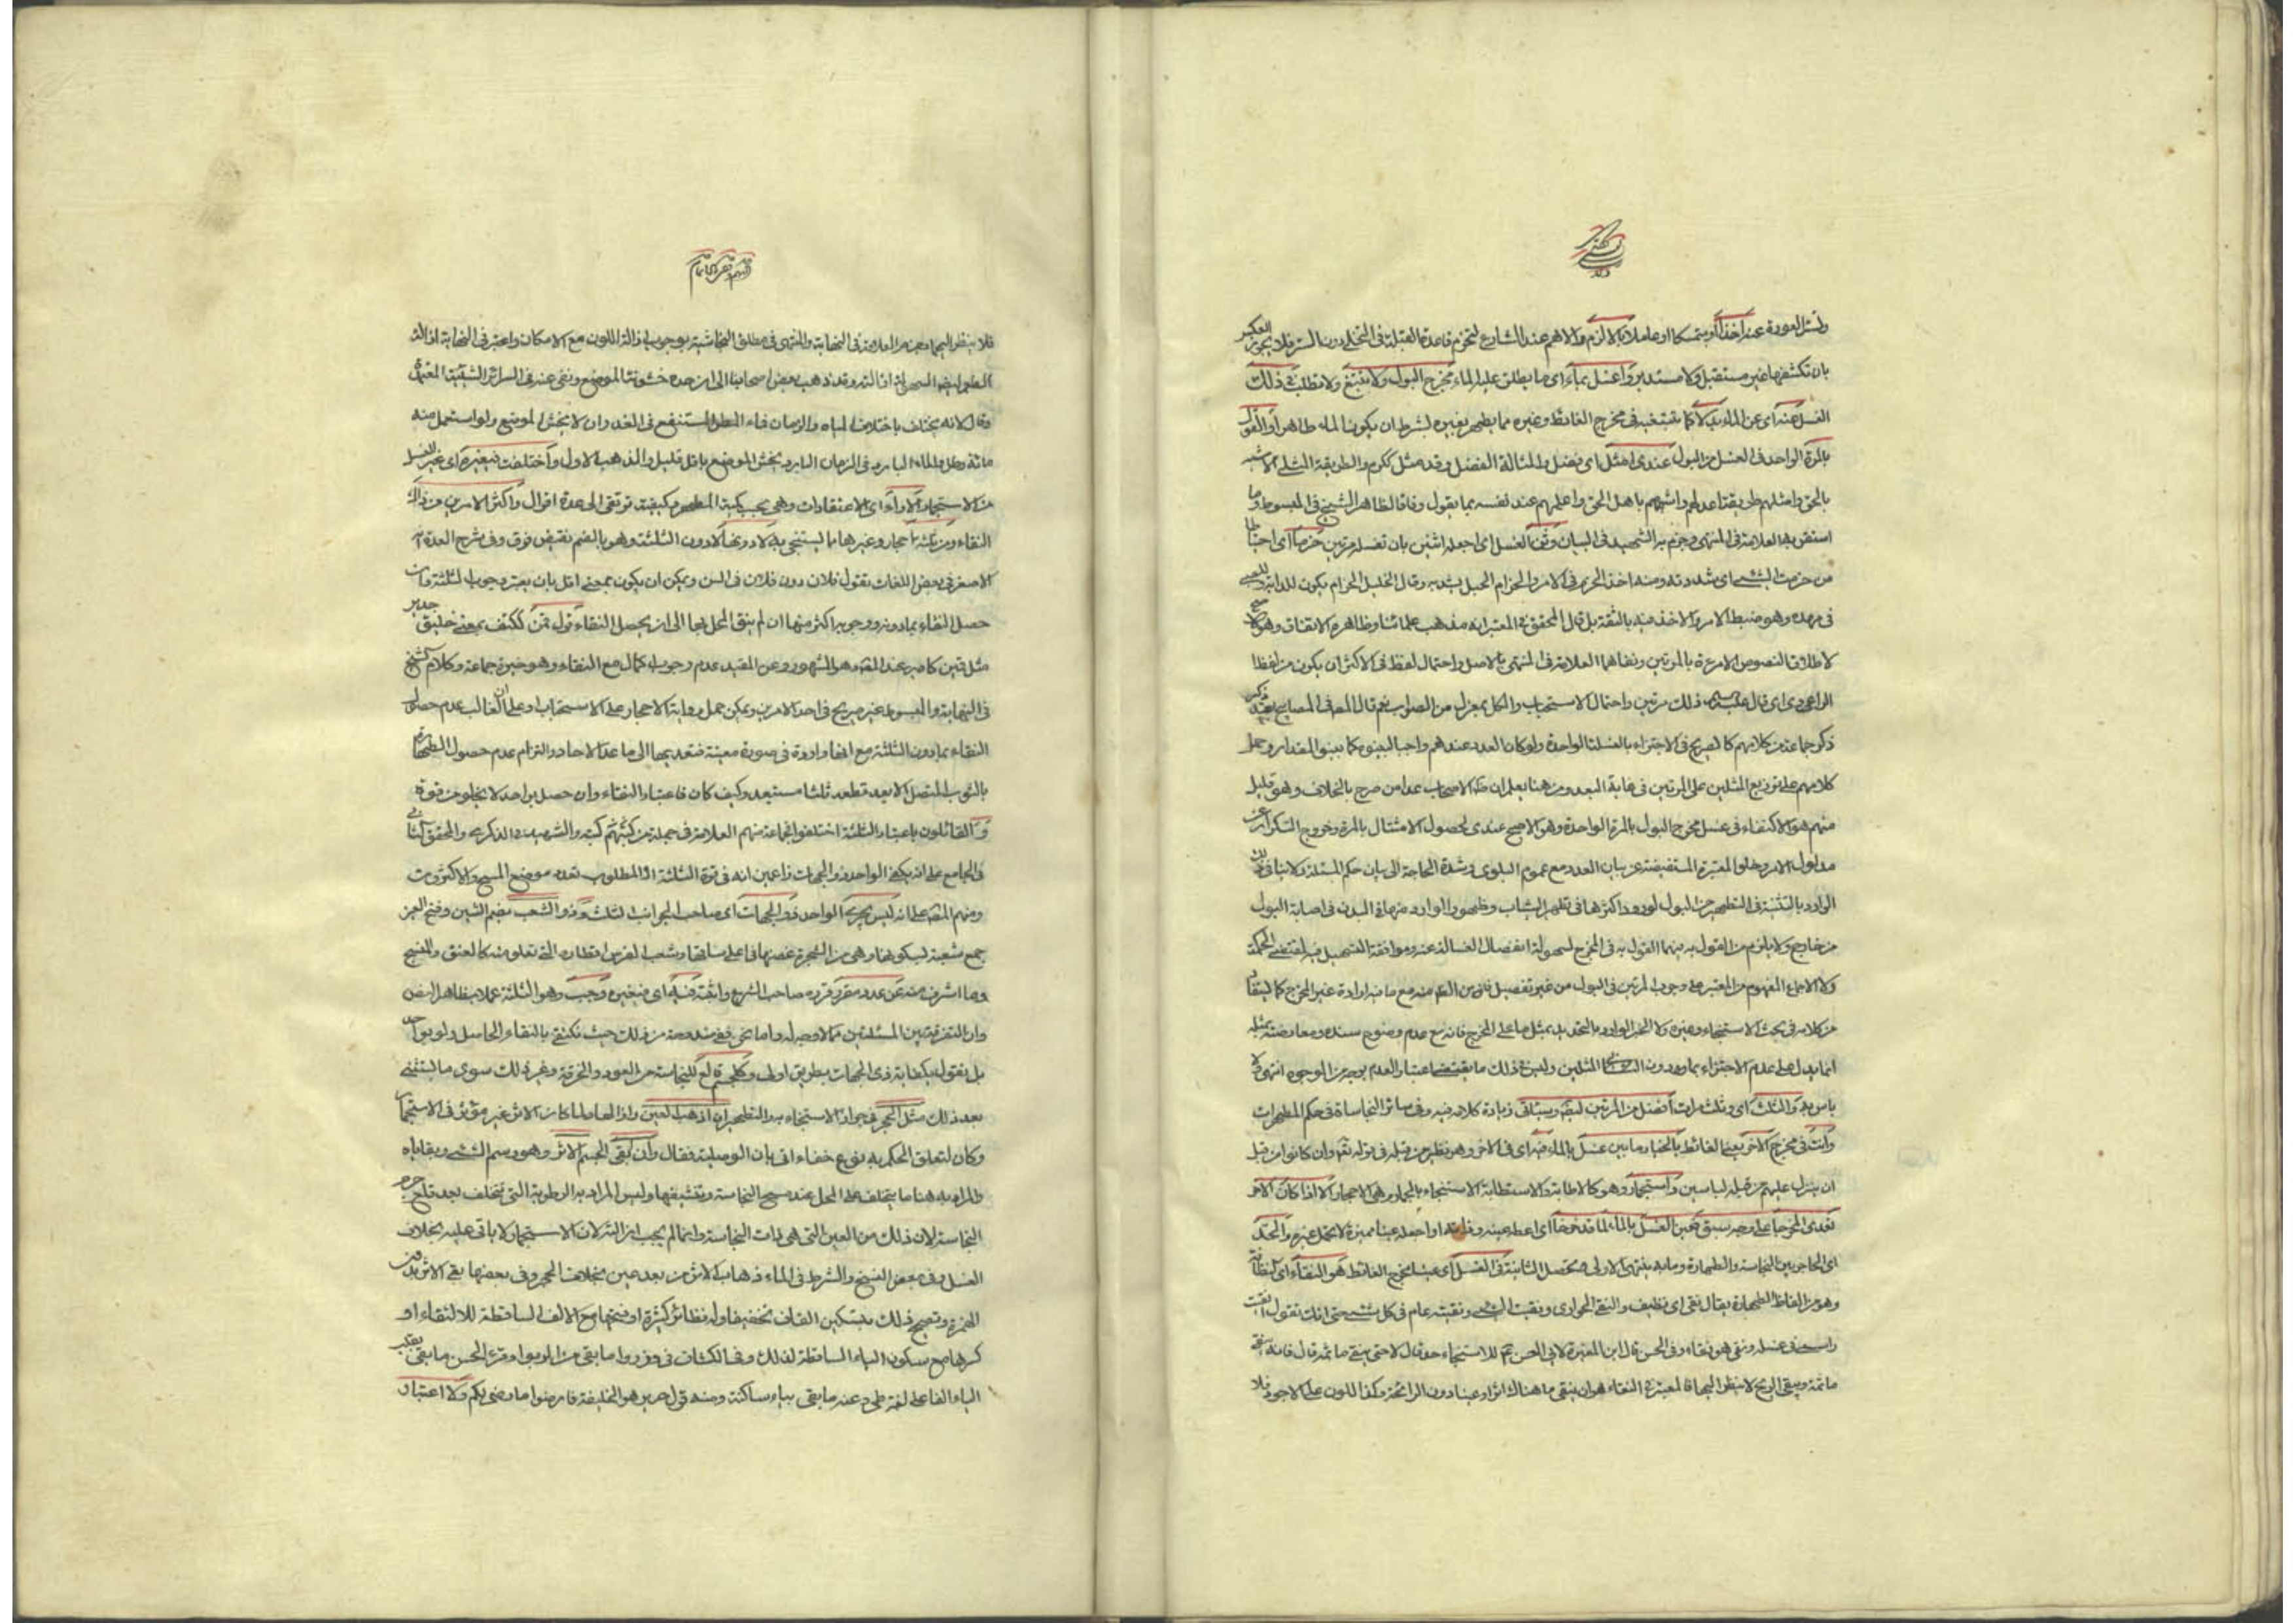 وستر العورة عنه آخذا او متمسكا او عاملا بالالزم والاهم عند الشارع لتخرم قاعدة القبلة في التخلي دون الستر فلا يجوز العكس
بان تكشفها غير مستقبل ولا مستدبر واغسل بماء اى ما يطلق عليه الماء مخرج البول ولا تبتغ ولا تطلب في ذلك
الغسل عنه اى عن الماء بدلا كما تبتغيه في مخرج الغائط وغيره مما يطهر بغيره بشرط ان يكون الماء طاهرا والقول
بالمرة الواحد في الغسل من البول عندى امثل اى افضل والمثالة الفضل وقد مثل ككرم والطريقة المثلى الاشبه
بالحق وامثلهم طريقة اعدلهم واشبههم باهل الحق واعلمهم عند نفسه بما يقول وفاقا لظاهر الشيخ في المبسوط وما
استقر به العلامة في المنتهى وجزم به الشهيد في البيان وثن الغسل اى اجعله اثنين بان تغسله مرتين حزما اى احتياطا
من حزمت الشيء اى شددته ومنه اخذ الحزم في الامر والحزام الحبل يشد به وقال الخليل الحزام يكون للدابة وللصبي
في مهده وهو ضبط الامر والاخذ فيه بالثقة بل قال المحقق في المعتبر انه مذهب علمائنا وظاهره الاتفاق وهو
لاطلاق النصوص الامرة بالمرتين ونفاهما العلامة في المنتهى بالاصل واحتمال لفظ في الاكثر ان يكون من لفظ
الراوى اى قال ذلك مرتين واحتمال الاستحباب والكل بمعزل من الصواب نعم قال المص في المصابيح بعد ذكر
ذكر جماعة من كلامهم كالصريح في الاجتزاء بالغسلة الواحدة ولو كان العدد عندهم واجبا لبينوه كما بينوا المقدار وحمل
كلامهم على توزيع المثلين على المرتين في غاية البعد ومن هنا يعلم ان الاصحاب عدا من صرح بالخلاف وهو قليل
منهم هو الاكتفاء في غسل مخرج البول بالمرة الواحدة وهو الاصح عندى لحصول الامتثال بالمرة وخروج التكرار عن
مدلول الامر وخلو المعتبرة المستفيضة عن بيان العدد مع عموم البلوى وشدة الحاجة الى بيان حكم المسئلة ولا ينافي ذلك
الوارد بالتثنية في التطهير من البول لورود اكثرها في تطهير الثياب وظهور الوارد منها في البدن في اصابة البول
من خارج ولا يلزم من القول به فيهما القول به في المخرج لسهولة انفصال الغسالة عنه وموافقة التسهيل فيه لمقتضى الحكمة
ولا الاجماع المفهوم من المعتبر على وجوب المرتين في البول من غير تفصيل مع ما فيه ارادة غير المخرج كما ينبئ
من كلامه في بحث الاستنجاء وغيره ولا الخبر الوارد بالتحديد بمثل ما على المخرج فانه مع عدم وضوح سنده ومعارضته بمثله
انما يدل على عدم الاجتزاء بما دون المثلين وليس في ذلك ما يقتضى اعتبار العدم بوجه من الوجوه انتهى ولا
باس به والثلث اى وثلث مرات افضل من المرتين لنص وسيأتى زيادة كلام فيه وفي سائر النجاسات في حكم المطهرات
وانت في مخرج الاخر يعنى الغائط بالخيار ما بين غسل بالماء فيه اى في الاخر وهو نظير من قبله في قوله تعالى وان كانوا من قبل
ان ينزل عليهم من قبله لمبلسين واستجمار وهو كالاطابة والاستطابة الاستنجاء بالجمار وهى الاحجار الا اذا كان الاخر
تعدى المخرجا على وجه سبق فعين الغسل بالماء لما قد خرجا اى اعطه عينه او اجعله عينا مميزة لا تحتمل غيره والحد
اى الحاجز بين النجاسة والطهارة وما به ينتهى الاولى وتحصل الثانية في الغسل اى غسل مخرج الغائط هو النقاء اى النظافة
وهو من الفاظ الطهارة يقال نقى اى نظيف والنقى الحوارى ونقيت الشيء ونقيته عام في كل شيء حتى انك تقول انقيت
راسه في غسله ونقى هو نقاء وفي الحسن قال ابن المغيرة لابى الحسن ع للاستنجاء حد قال لا حتى ينقى ما ثمه قال فانه ينقى
ما ثمة ويبقى الريح قال الريح لا ينظر اليها فالمعتبر في النقاء هو ان ينقى ما هناك اثرا وعينا دون الرائحة وكذا اللون على الاجود فلا
فلا ينظر اليها وعن العلامة في النهاية والمنتهى في مطلق النجاسة وجوب ازالة اللون مع الامكان واعتبر في النهاية ازالة
الطعم لسهولة ازالته وقد ذهب بعض اصحابنا الى ان حده خشونة الموضع ونفى عنه في السرائر الشيئية المعتبرة
وقال لانه يختلف باختلاف المياه والزمان فماء المطر المستنقع في الغدران لا يخشن الموضع ولو استعمل منه
مائة رطل والماء البارد في الزمان البارد يخشن الموضع باقل قليل والمذهب الاول واختلفت بغيره اى غير الغسل
من الاستجمار الآراء اى الاعتقادات وهى بحسب كمية المطهر وكيفيته ترتقى الى عدة اقوال واكثر الامرين من ذاك
النقاء ومن ثلثة احجار وغيرها مما يستنجى به لا دونها لا دون الثلثة وهو بالضم نقيض فوق وفي شرح العدة
الاصغر في بعض اللغات تقول فلان دون فلان في السن ويمكن ان يكون بمعنى اقل بان يعتبر وجوب الثلثة وان
حصل النقاء بما دونه ووجوب اكثر منها ان لم ينق المحل بها الى ان يحصل النقاء قول قمن ككتف بمعنى خليق جدير
مثل قمين كامير عند المص وهو المشهور وعن المفيد عدم وجوب اكمال مع النقاء وهو خيرة جماعة وكلام الشيخ
في النهاية والمبسوط غير صريح في احد الامرين ويمكن حمل رواية الاحجار على الاستحباب او على ان الغالب عدم حصول
النقاء بما دون الثلثة مع انها واردة في صورة معينة فتعديتها الى ما عدا الاحجار والتزام عدم حصول الطهارة
بالثوب المتصل الا بعد قطعه ثلثا مستبعد وكيف كان فاعتبار النقاء وان حصل بواحد لا يخلو من قوة
والقائلون باعتبار الثلثة اختلفوا فجماعة منهم العلامة في جملة من كتبه والشهيد في الذكرى والمحقق الثانى
في الجامع على انه يكفى الواحد ذو الجهات زاعمين انه في قوة الثلثة اذ المطلوب تعدد موضع المسح والاكثرون
ومنهم المص على انه ليس يجزى الواحد ذو الجهات اى صاحب الجوانب الثلث وذو الشعب بضم الشين وفتح العين
جمع شعبة بسكونها وهى من الشجرة غصنها في اعلى ساقها وشعب الفرس اقطاره التى تعلو منه كالعنق والمنسج
وما اشرف منه عن عدد مقرر قرره صاحب الشرع واثبته فيه اى في غيره وجب وهو الثلثة عملا بظاهر النص
وان التفرقة بين المسئلتين مما لا وجه له واما نحن ففي مندوحة من ذلك حيث نكتفى بالنقاء الحاصل ولو بواحد
بل نقول بكفاية ذى الجهات بطريق اولى وكل جسم قالع للنجاسة من العود والخرقة وغير ذلك سوى ما يستثنى
بعد ذلك مثل الحجر في جواز الاستنجاء به والتطهير ان اذهب العين وازالها ولما كان الاثر غير مؤثر في الاستجمار
وكان لتعلق الحكم به نوع خفاء اتى بان الوصلية فقال وان يبقى الجسم الاثر وهو رسم الشيء وبقاياه
والمراد به هنا ما يتخلف على المحل عند مسح النجاسة وتنشيفها وليس المراد به الرطوبة التى تتخلف بعد قلع جرم
النجاسة لان ذلك من العين التى هى ذات النجاسة وانما لم يجب ازالته لان الاستجمار لا ياتى عليه بخلاف
الغسل وفي بعض النسخ والشرط في الماء ذهاب الاثر من بعد عين بخلاف الحجر وفي بعضها بقى الاثر بدون
الهمزة وتصحيح ذلك بتسكين القاف تخفيفا وله نظائر كثيرة او فتحها مع الالف الساقطة للالتقاء او
كسرها مع سكون الياء الساقطة لذلك وفي الكشاف في وذروا ما بقى من الربوا وقرء الحسن ما بقى بقلب
الياء الفا على لغة طى وعنه ما بقى بياء ساكنة ومنه قول جرير هو الخليفة فارضوا ما رضى لكم ولا اعتبار